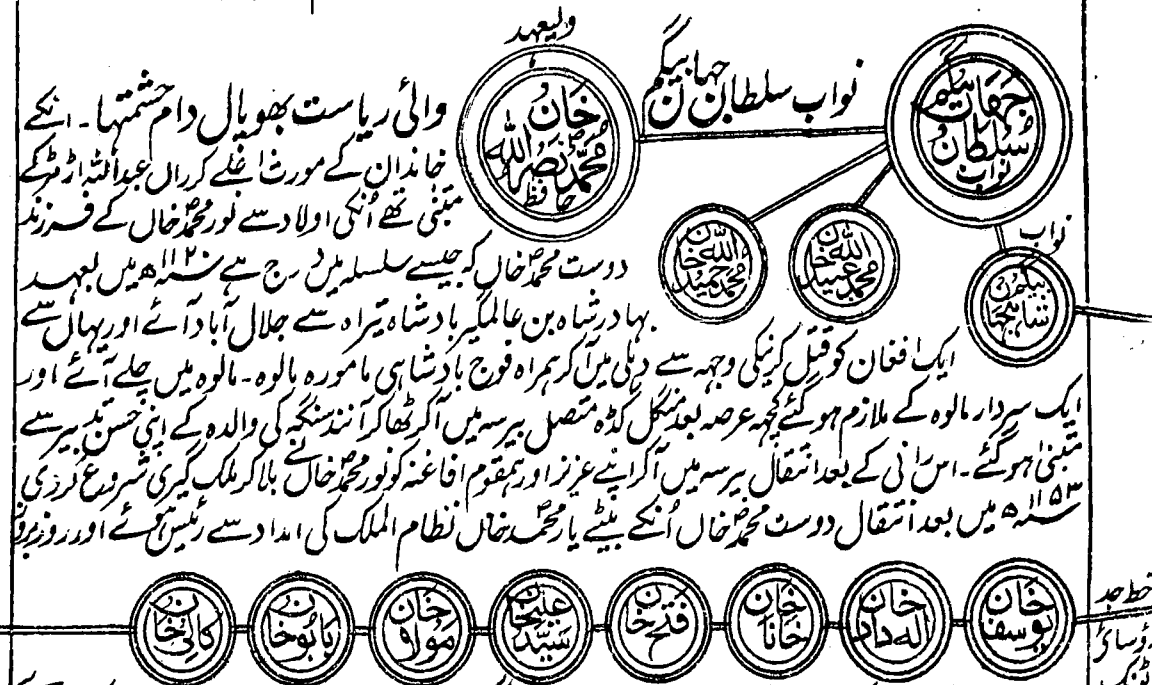 ولیعہد
نواب سلطان جہان بیگم
نواب سلطان جہان بیگم
حافظ محمد نصر اللہ خان
والئ ریاست بھوپال دام حشمتہا۔ انکے
خاندان کے مورث اعلے کرران عبداللہ اڑمڑ کے
متبنی تھے اُنکی اولاد سے نور محمد خاں کے فرزند
محمد عبید اللہ خان
محمد حمید اللہ خان
نواب
شاہجہان بیگم
دوست محمد خاں کہ جیسے سلسلہ میں درج ہے ۱۱۲۰ھ میں بعہد
بہادر شاہ بن عالمگیر بادشاہ تیراہ سے جلال آباد آئے اور یہاں سے
ایک افغان کو قتل کرنیکی وجہہ سے دہلی میں آکر ہمراہ فوج بادشاہی مامورہ مالوہ۔ مالوہ میں چلے آئے اور
ایک سردار مالوہ کے ملازم ہوگئے کچہہ عرصہ بعد منگل گڈہ متصل بیرسہ میں آکر ٹھاکر آنند سنگہ کی والدہ کے اپنی حسن تدبیر سے
متبنیٰ ہوگئے۔ اس رانی کے بعد انتقال بیرسہ میں آکر اپنے عزیز اور ہمقوم افاغنہ کو نور محمد خاں نے بلاکر ملک گیری شروع کردی
۱۱۵۳ھ میں بعد انتقال دوست محمد خاں اُنکے بیٹے یار محمد خاں نظام الملک کی امداد سے رئیس ہوئے اور روز بروز
خط جد
یوسف خان
الہ داد خان
خانا خان
فتح خان
سید علیخان
مورا خان
بابو خان
کالی خان
رؤسائ
ٹونک